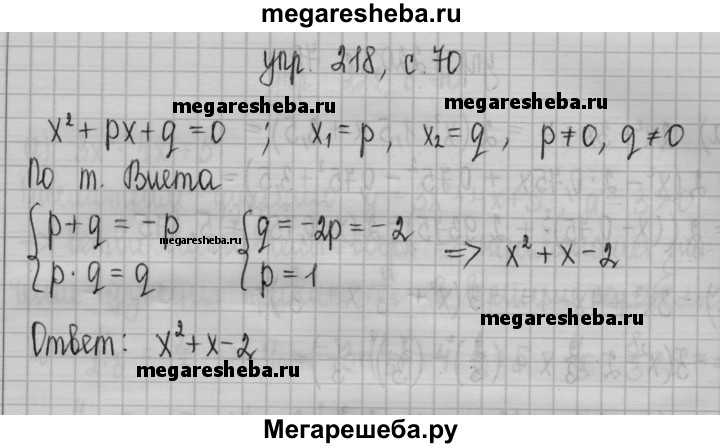 megaresheba.ru
упр. 218, с. 70
megaresheba.ru megaresheba.ru
x² + px + q = 0 ; x₁ = p, x₂ = q, p ≠ 0, q ≠ 0
По т. Виета
{ p + q = -p { q = -2p = -2
megaresheba.ru
{ p · q = q { p = 1 => x² + x - 2
megaresheba.ru
Ответ: x² + x - 2
megaresheba.ru
Мегарешеба.ру